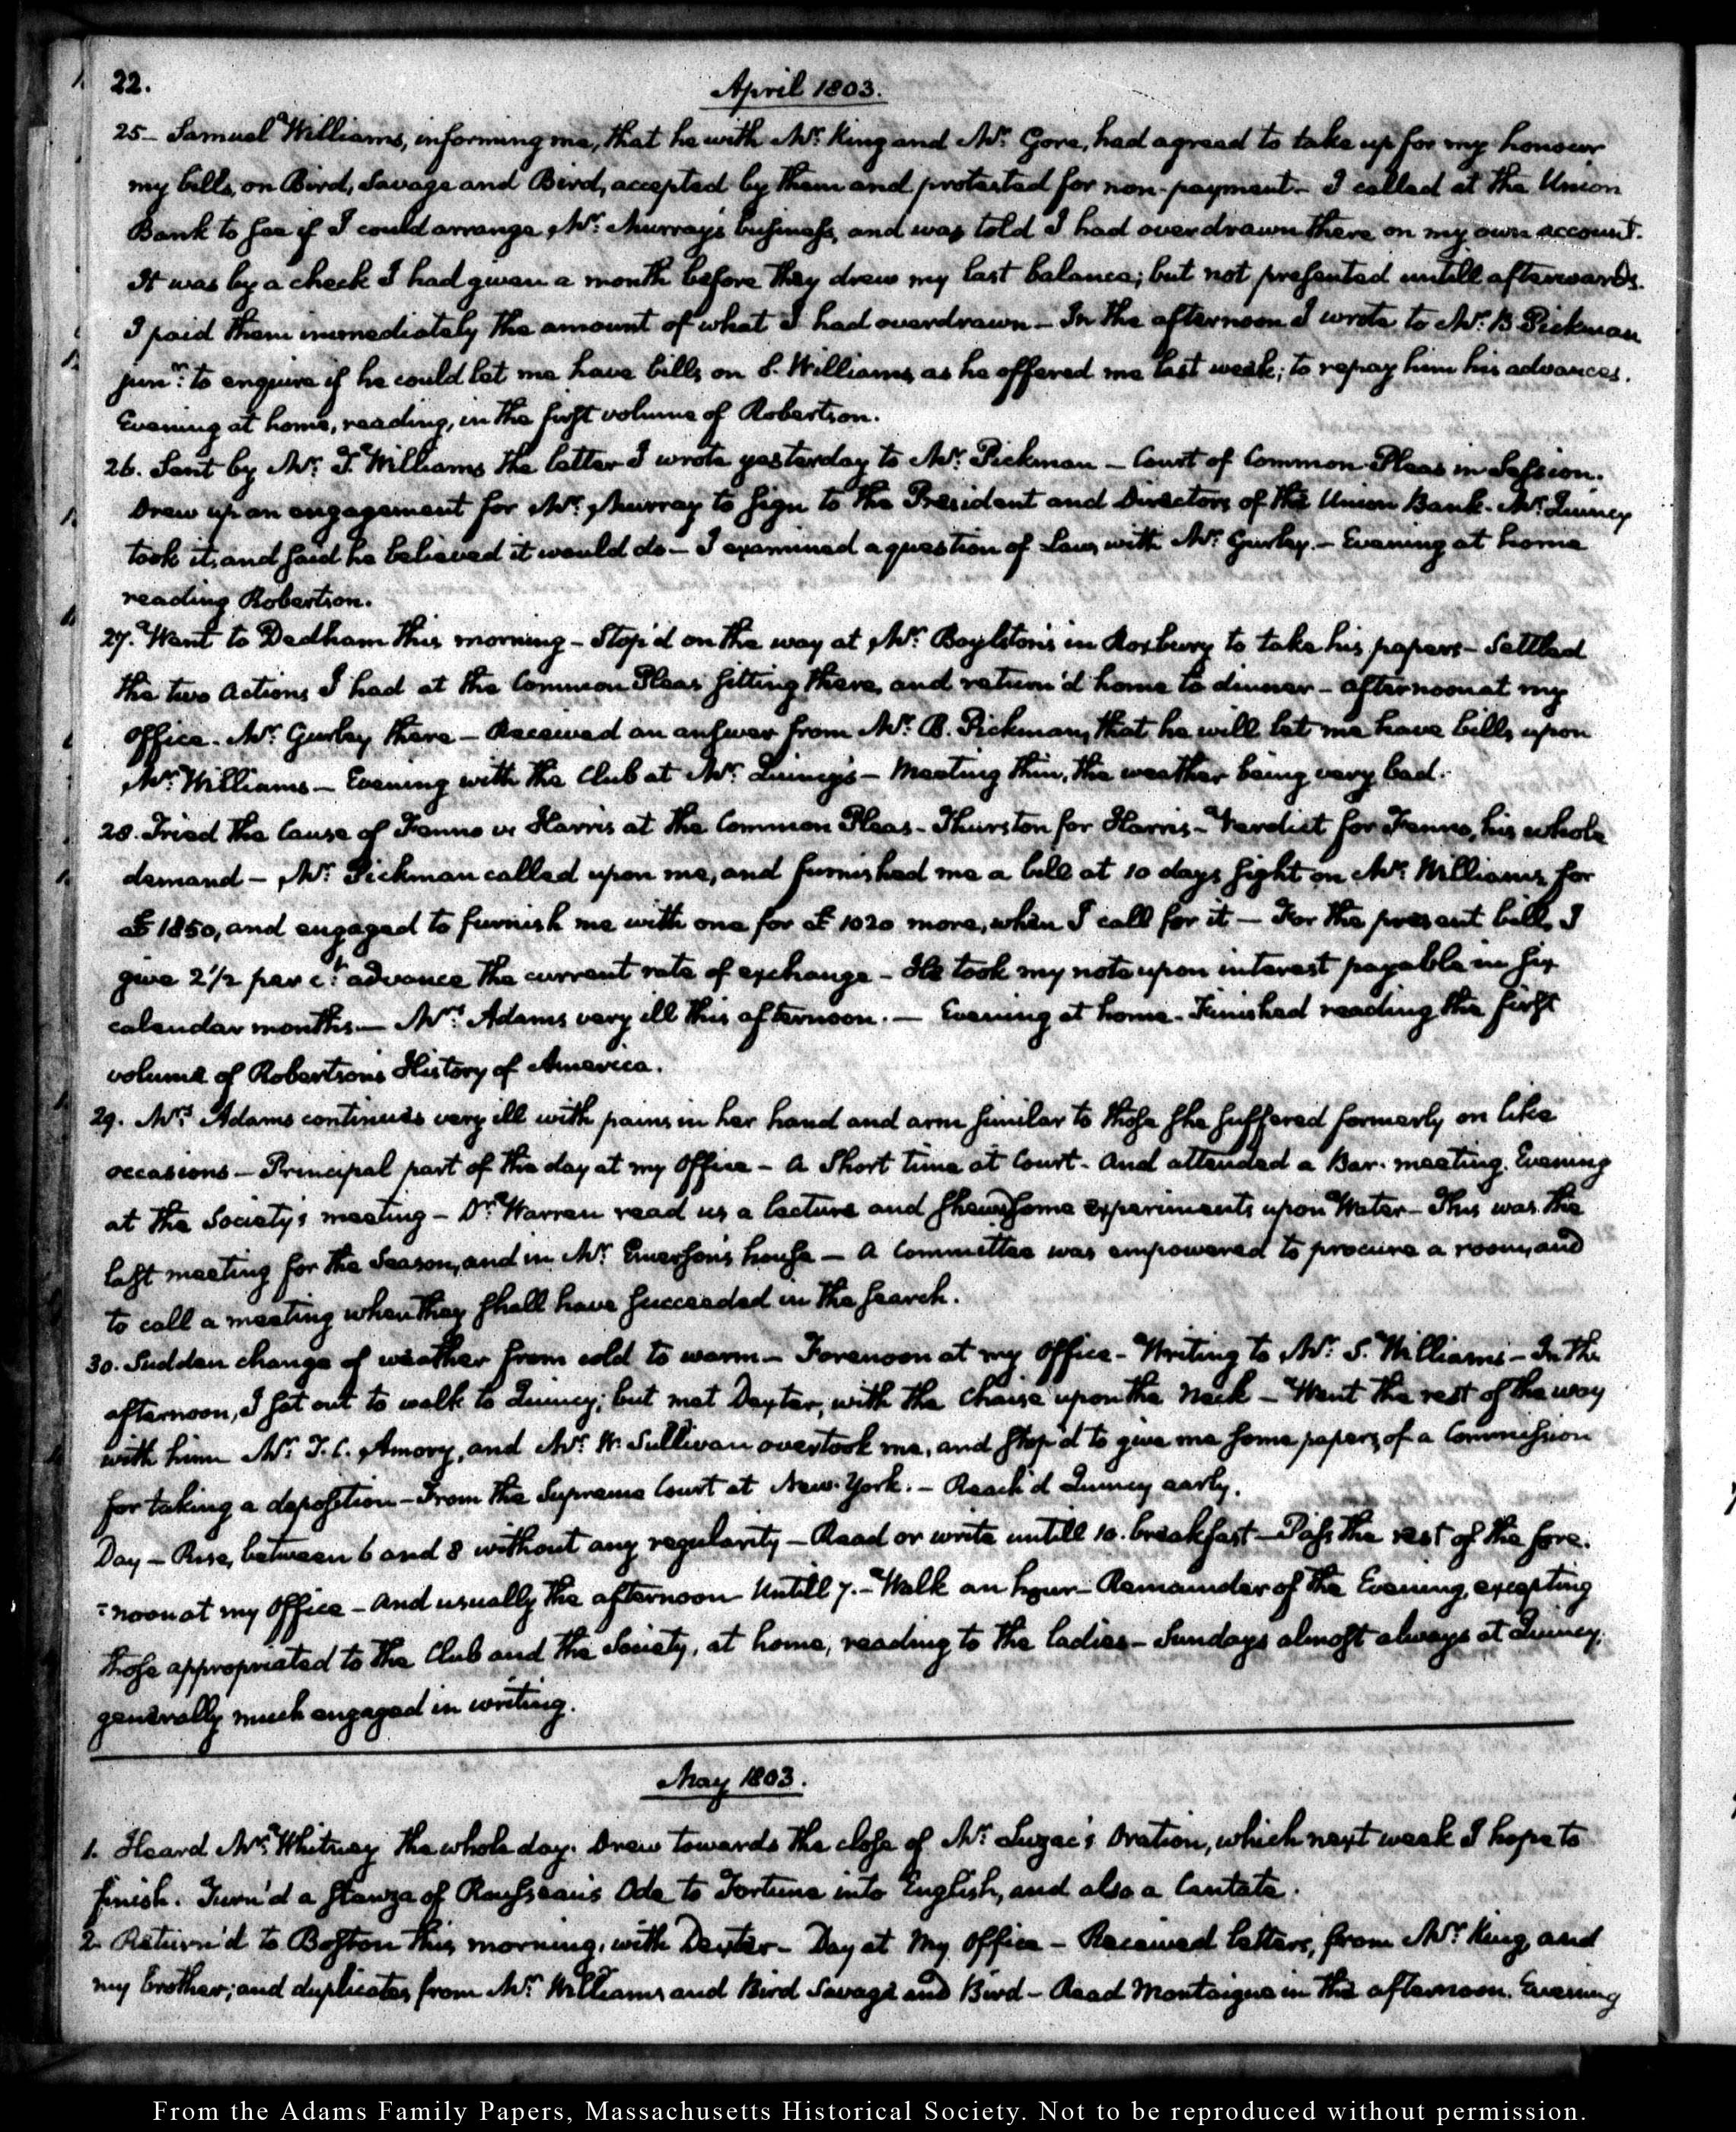 22.
April 1803.
25– Samuel Williams, informing me, that he with Mr. King and Mr. Gore, had agreed to take up for my honour
my bills, on Bird, Savage and Bird, accepted by them and protested for non-payment – I called at the Union
Bank to see if I could arrange Mr. Murray's business, and was told I had overdrawn there on my own account.
It was by a check I had given a month before they drew my last balance; but not presented untill afterwards.
I paid them immediately the amount of what I had overdrawn – In the afternoon I wrote to Mr. B. Pickman
junr. to enquire if he could let me have bills on S. Williams, as he offered me last week; to repay him his advances.
Evening at home, reading, in the first volume of Robertson.
26. Sent by Mr. T. Williams the letter I wrote yesterday to Mr. Pickman – Court of Common Pleas in Session.
Drew up an engagement for Mr. Murray to sign to the President and Directors of the Union Bank. Mr. Quincy
took it, and said he believed it would do – I examined a question of Law, with Mr. Gurley. – Evening at home
reading Robertson.
27. Went to Dedham this morning – Stop'd on the way at Mr. Boylston's in Roxbury to take his papers – Settled
the two Actions I had at the Common Pleas sitting there, and return'd home to dinner – afternoon at my
Office. Mr. Gurley there – Received an answer from Mr. B. Pickman, that he will let me have bills, upon
Mr. Williams – Evening with the Club at Mr. Quincy's – Meeting thin, the weather being very bad.
28. Tried the Cause of Fenno vs Harris at the Common Pleas – Thurston for Harris – Verdict for Fenno, his whole
demand – Mr. Pickman called upon me, and furnished me a bill at 10 days sight on Mr. Williams for
£ 1850, and engaged to furnish me with one for £ 1020 more, when I call for it – For the present bill, I
give 2 1/2 per ct. advance the current rate of exchange – He took my note upon interest payable in six
calendar months. – Mrs. Adams very ill this afternoon. – Evening at home – Finished reading the first
volume of Robertson's History of America.
29. Mrs. Adams continues very ill with pains in her hand and arm similar to those she suffered formerly on like
occasions – Principal part of the day at my Office – A Short time at Court – And attended a Bar-meeting. Evening
at the Society's meeting – Dr. Warren read us a lecture and shew'd some experiments upon Water – This was the
last meeting for the Season, and in Mr. Emerson's house – A Committee was empowered to procure a room, and
to call a meeting when they shall have succeeded in the search.
30. Sudden change of weather from cold to warm – Forenoon at my Office – Writing to Mr. S. Williams – In the
afternoon, I sat out to walk to Quincy; but met Dexter, with the Chaise upon the Neck – Went the rest of the way
with him Mr. T. C. Amory, and Mr. W. Sullivan overtook me, and stop'd to give me some papers, of a Commission
for taking a deposition – From the Supreme Court at New-York. – Reach'd Quincy early.
Day – Rise, between 6 and 8 without any regularity – Read or write untill 10. breakfast – Pass the rest of the fore-
-noon at my Office – And usually the afternoon untill 7. – Walk an hour – Remainder of the Evening, excepting
those appropriated to the Club and the Society, at home, reading to the ladies – Sundays almost always at Quincy,
generally much engaged in writing.
May 1803.
1. Heard Mr. Whitney the whole day. Drew towards the close of Mr. Luzac's Oration, which next week I hope to
finish. Turn'd a stanza of Rousseau's Ode to Fortune into English, and also a Cantata.
2. Return'd to Boston this morning, with Dexter – Day at my Office – Received letters, from Mr. King, and
my brother; and duplicates, from Mr. Williams and Bird Savage and Bird – Read Montaigne in the afternoon. Evening
From the Adams Family Papers, Massachusetts Historical Society. Not to be reproduced without permission.